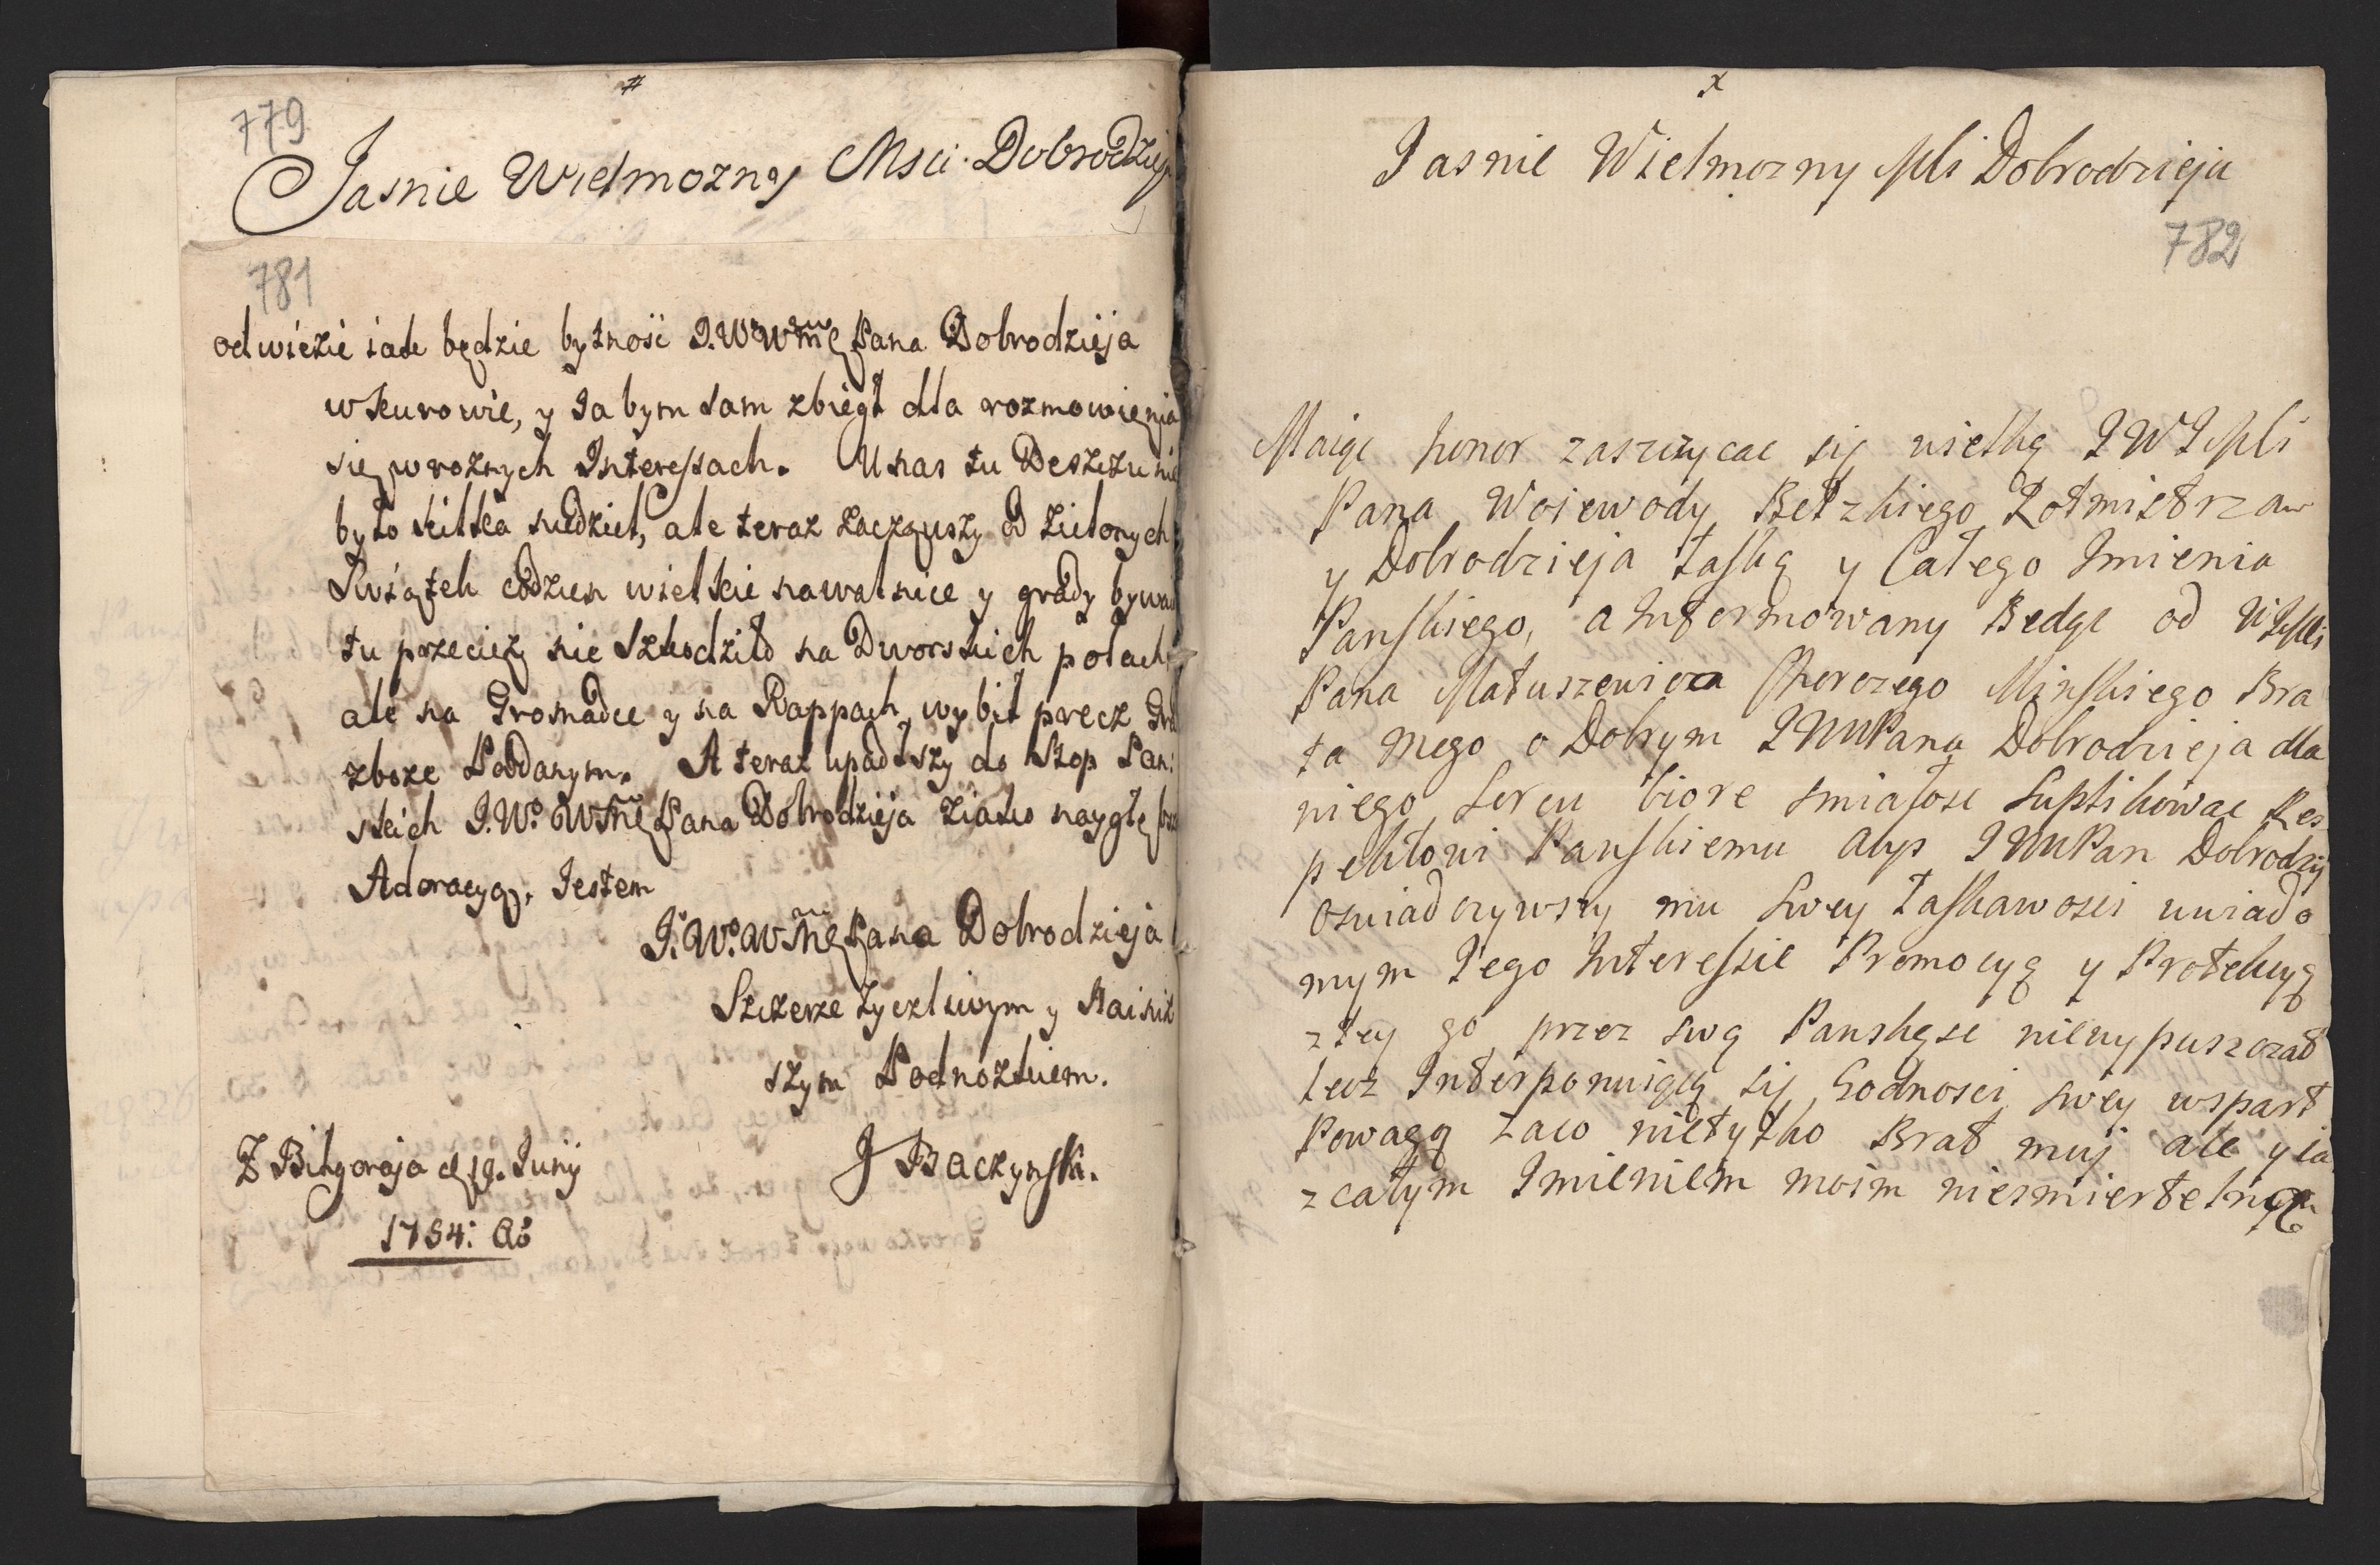 #
779
Jasnie Wielmozny Msci Dobrodzieju
781
od wiezie iak będzie bytność J. W. WMę Pana Dobrodzieja
w Kurowie, y Ja bym sam zbiegł dla rozmowienia
się w roznych Interessach. U nas tu Deszczu nie
było kilka niedziel, ale teraz zacząwszy od zielonych
Swiątek codzien wielkie nawalnice y grady bywa
tu przecież nie szkodziło na Dworskich polach,
ale na Gromadce y na Rappach wybił precz Gra
zboze Poddanym. A teraz upadłszy do Stop Pan:
skich J. Wo. WMę Pana Dobrodzieja ziako naygłę
Adoracyą, Jestem
J. Wo. WMę Pana Dobrodzieja
Szczerze zyczliwym y Nainiz
szym Podnozkiem.
Z Biłgoraja d. 19. Junij
J Baczynski.
1754: Ao
x
Jasnie Wielmozny Mci Dobrodzieju
782
Maiąc honor zaszczycac się wielką JWJMci
Pana Woiewody Bełzkiego Rotmistrza
y Dobrodzieja łaską y Całego Imienia
Panskiego, a Informowany Będąc od WJMci
Pana Matuszewicza Chorczego Minskiego Bra
ta mego o Dobrym JWMPana Dobrodzieja dla
niego Sercu biore smiałosc Suplikowac Res
pektowi Panskiemu abys JWMPan Dobrodziej
oswiadczywszy mu Swey łaskawosci w wiado
mym Jego Interessie Promocyą y Protekcyą
z tey go przez swą Panskąsc niewypuszczał
lecz Interponuiącą się Godnosci swey wsparł
Powagą zaco nietylko Brat muj ale y ia
z całym Imieniem moim niesmiertelnych